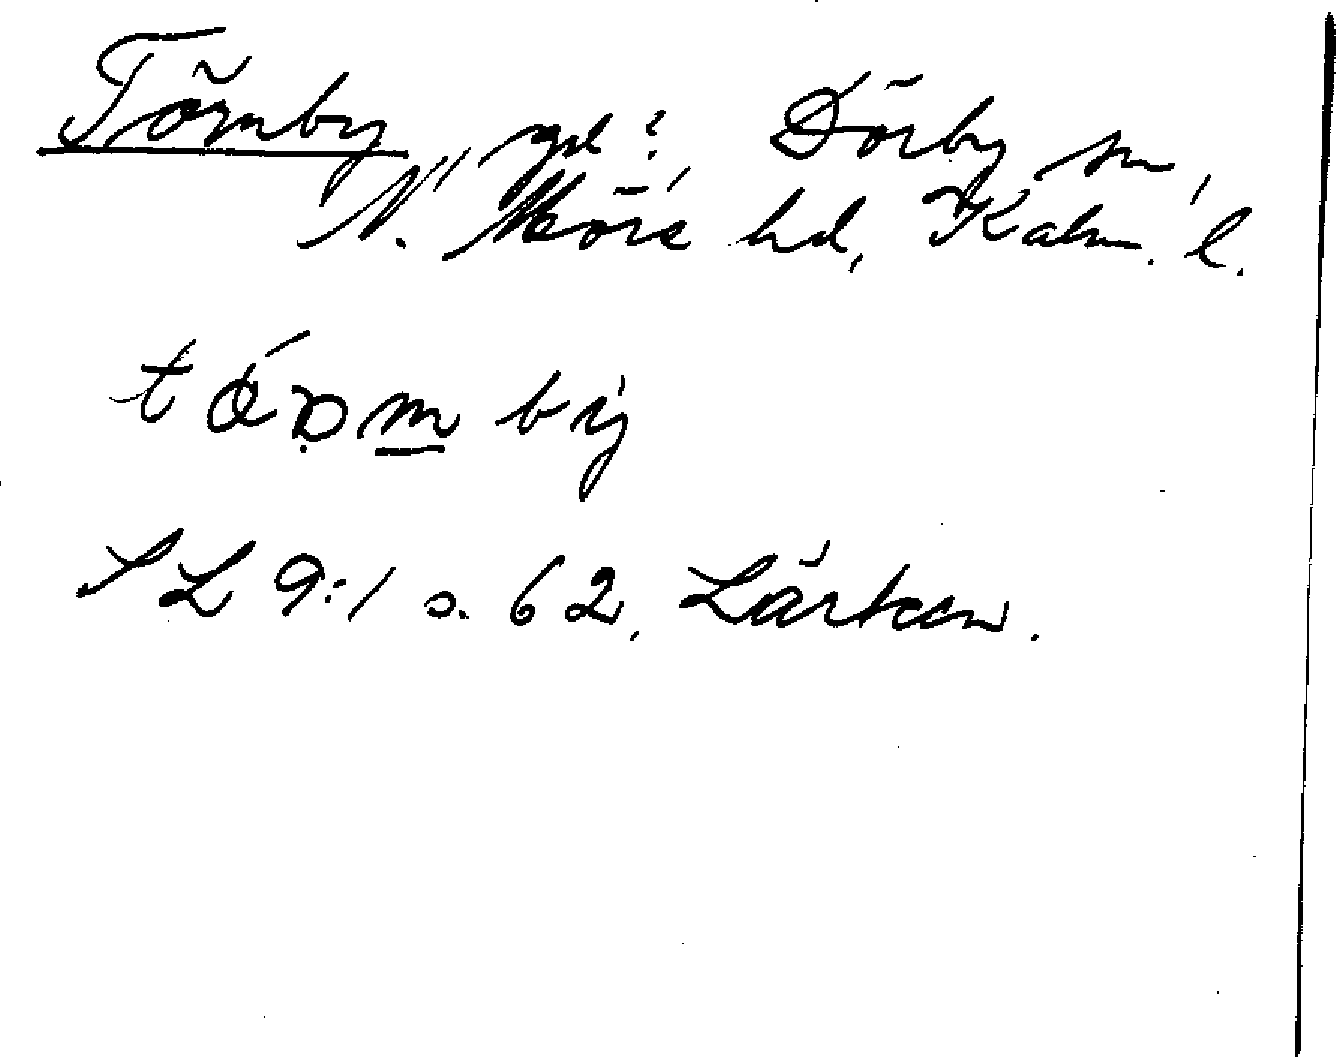 Törnby, gd? Dörby sn,
N. Möre hd, Kalm. l.
by
SL 9:1 s. 62, Lärkan.